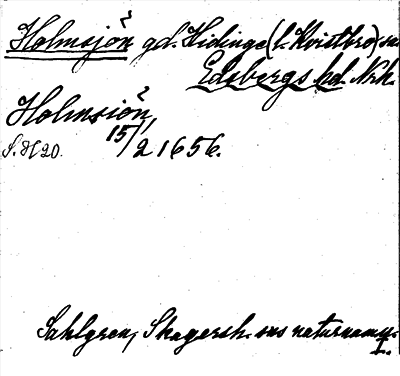 Holmsjön gd. Hidinge (l. Kvistbro) sn
Edsbergs hd. Nrk.
Holmsiön,
S. H 20. 15/2 1656.
Sahlgren, Skagersh. sns naturnamn.
1.